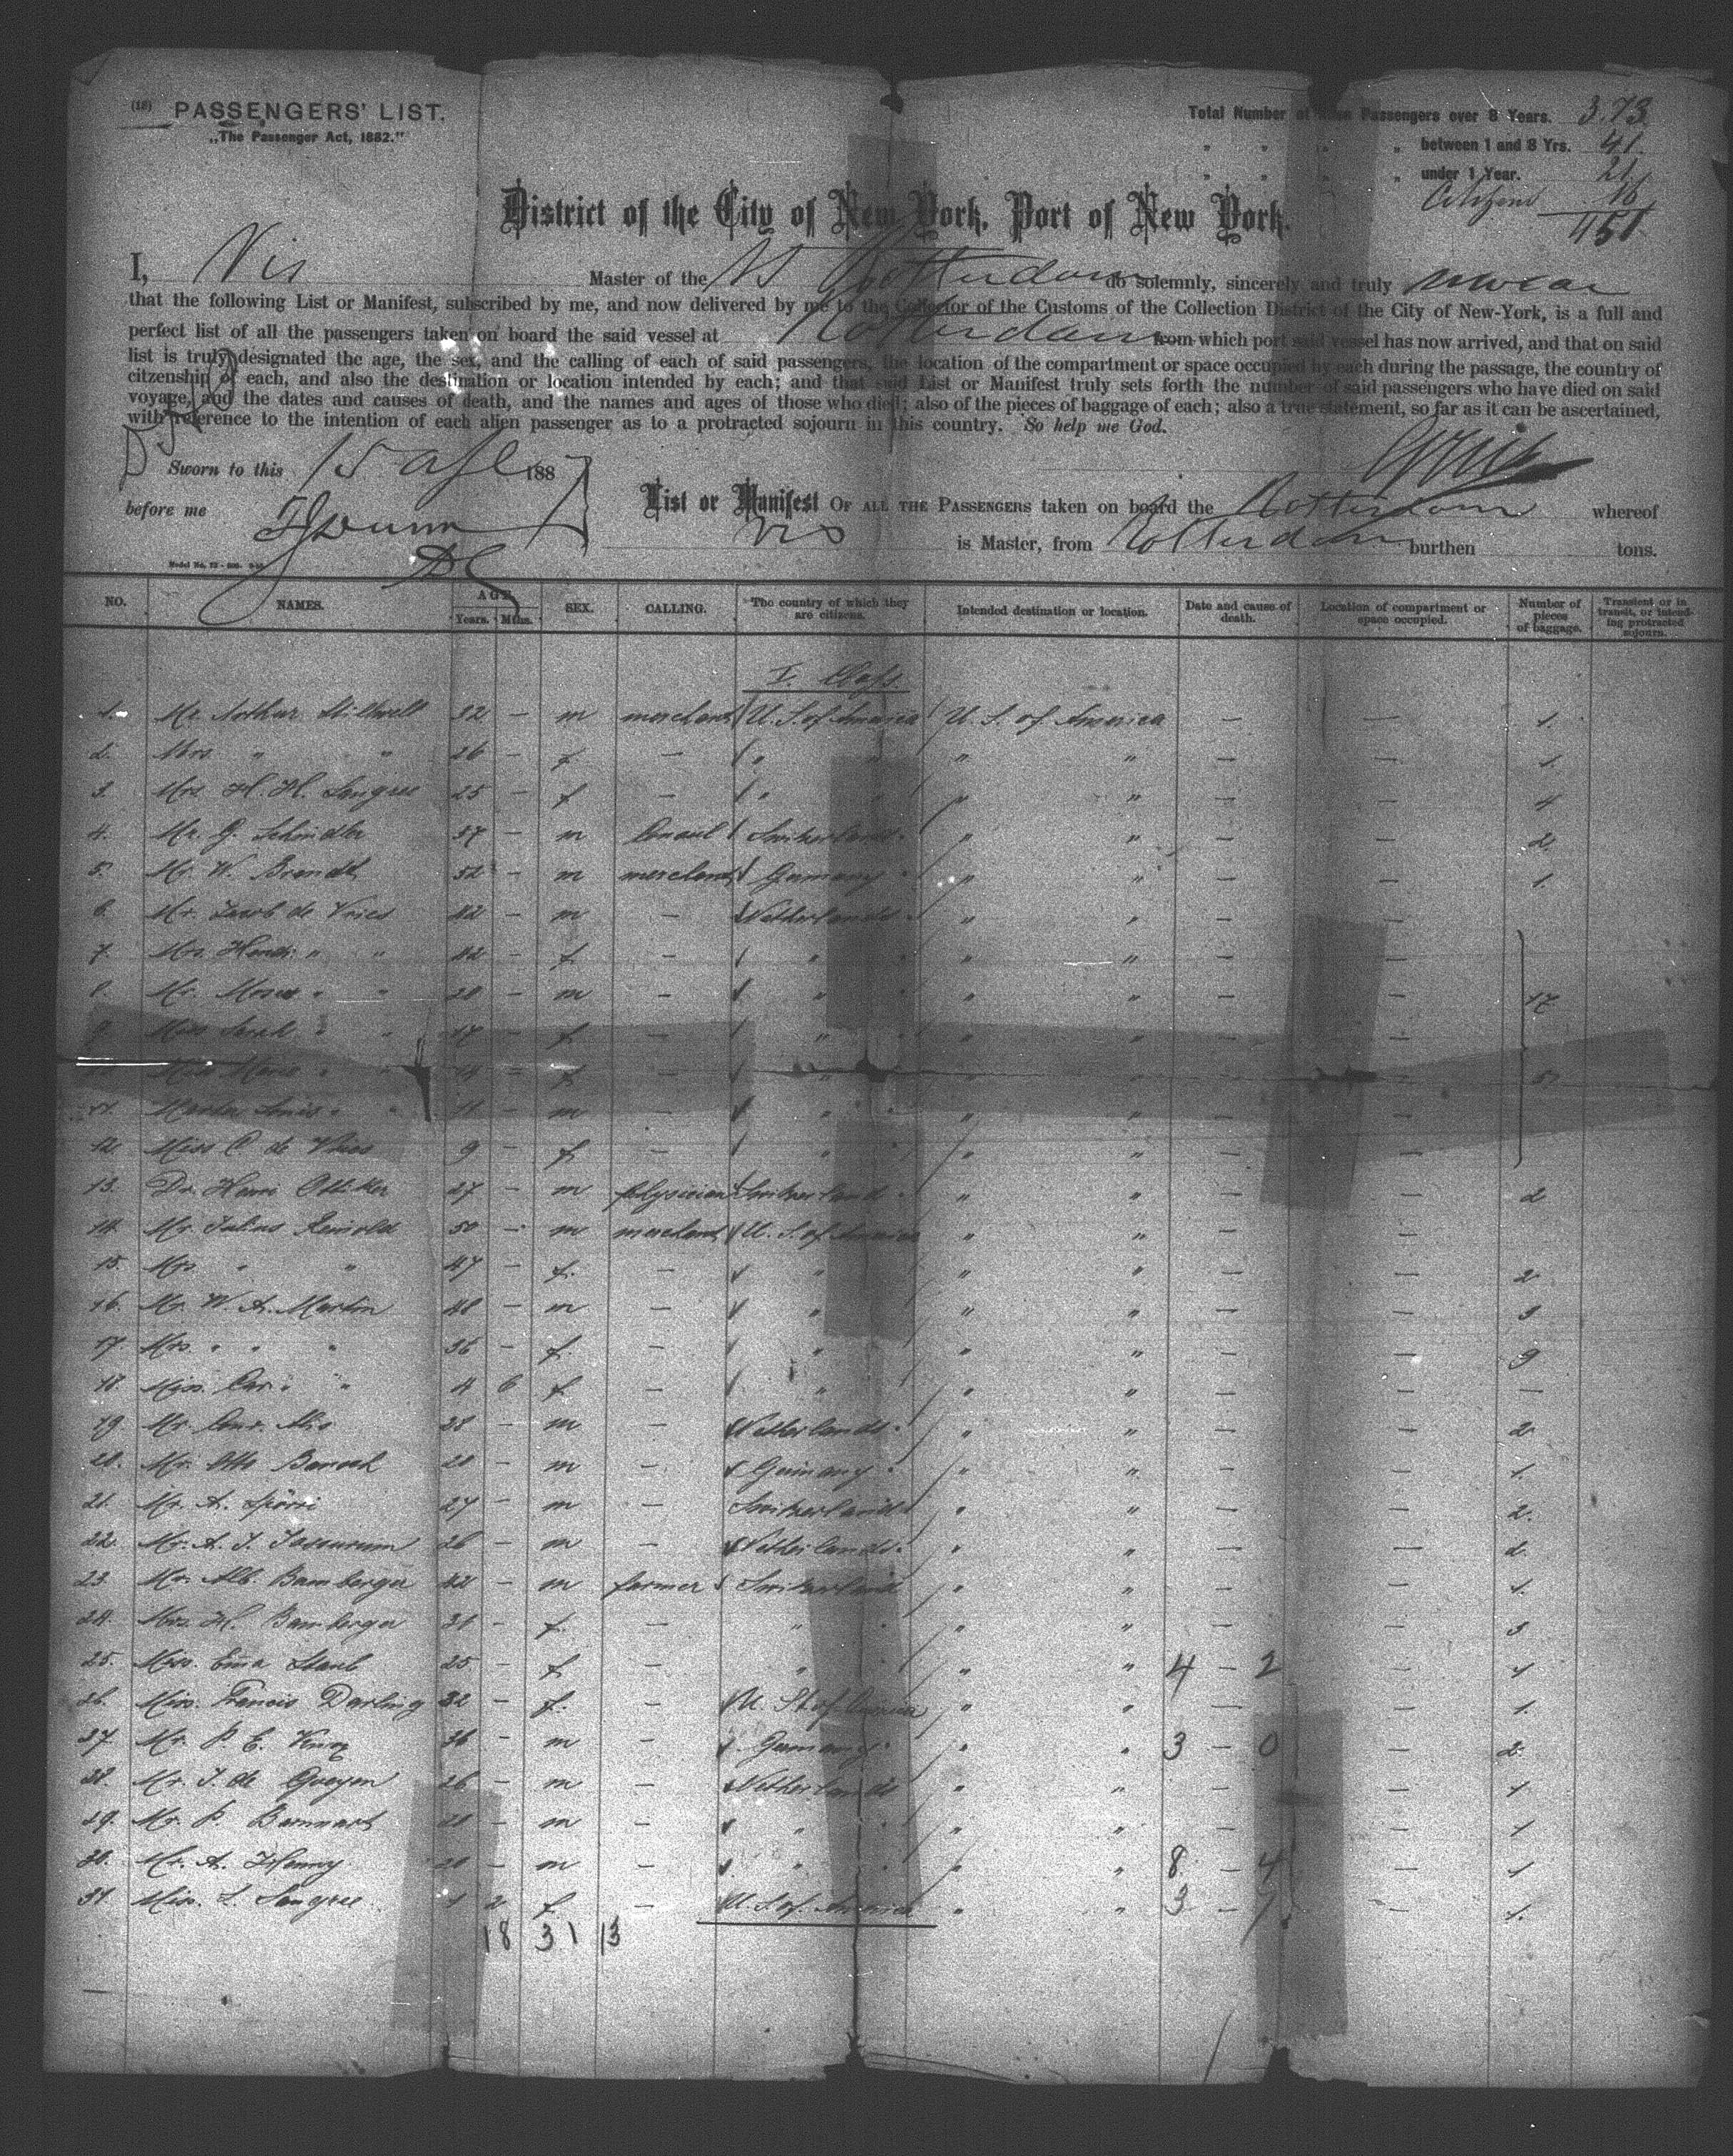 (18) PASSENGERS' LIST.
„The Passenger Act, 1882."
Total Number of Alien Passengers over 8 Years. 373
„ „ „ „ between 1 and 8 Yrs. 41
„ „ „ „ under 1 Year. 21
Citizens 16
451
District of the City of New York, Port of New York.
I, Vis Master of the Rotterdam do solemnly, sincerely and truly swear
that the following List or Manifest, subscribed by me, and now delivered by me to the Collector of the Customs of the Collection District of the City of New-York, is a full and
perfect list of all the passengers taken on board the said vessel at Rotterdam from which port said vessel has now arrived, and that on said
list is truly designated the age, the sex, and the calling of each of said passengers, the location of the compartment or space occupied by each during the passage, the country of
citzenship of each, and also the destination or location intended by each; and that said List or Manifest truly sets forth the number of said passengers who have died on said
voyage, and the dates and causes of death, and the names and ages of those who died; also of the pieces of baggage of each; also a true statement, so far as it can be ascertained,
with reference to the intention of each alien passenger as to a protracted sojourn in this country. So help me God.
Sworn to this 15 188
before me
List or Manifest OF ALL THE PASSENGERS taken on board the Rotterdam whereof
Vis is Master, from Rotterdam burthen tons.
NO. NAMES. AGE. Years. Mths. SEX. CALLING. The country of which they are citizens. Intended destination or location. Date and cause of death. Location of compartment or space occupied. Number of pieces of baggage. Transient or in transit, or intending protracted sojourn.
I. Class.
1. Mr. Arthur Stillwell 32 — m merchant U. S. of America U. S. of America — — 1.
2. Mrs. " " 26 — f — " " " " — — 1.
3. Mrs. H. H. 25 — f — " " " " — — 4
4. Mr. G. Schindler 37 — m Consul Switzerland " " — — 2.
5. Mr. W. Brendt 52 — m merchant Germany " " — — 1.
6. Mr. Jacob de Vries 42 — m — Netherlands " " — —
7. Mrs. " " 42 — f — " " " — —
8. Mr. Moses " " 20 — m — " " " — — 17
9. Miss Sarah " " 17 — f — " " " — —
Miss Marie " " f — " " " — —
11. Master Louis " " 11 — m — " " " — —
12. Miss C de Vries 9 — f — " " " — —
13. Dr. Henri 27 — m physician Switzerland " " — — 2
14. Mr. Julius Reinold 50 — m merchant U. S. of America " " — —
15. Mrs. " " 47 — f. — " " " — — 2
16. Mr. W. A. Martin 48 — m — " " " — — 3
17. Mrs. " " " 36 — f. — " " " — — 9
18. Miss. " " 4 6 f — " " " — — —
19. Mr. 28 — m — Netherlands " " — — 2
20. Mr. Otto 20 — m — Germany " " — — 1.
21. Mr. A. Spörri 27 — m — Switzerland " " — — 2.
22. Mr. A. J. 26 — m — Netherlands " " — — 2.
23. Mr. Alb. Bamberger 42 — m farmer Switzerland " " — — 1.
24. Mrs. H. Bamberger 31 — f. — " " " — — 3
25. Miss. Emma Staub 25 — f — " " " 4 — 2 — 1
26. Miss. Francis Darling 32 — f. — U. St. of America " " — — 1.
27. Mr. P. E. 36 — m — Germany " " 3 — 0 — 2.
28. Mr. J. de 26 — m — Netherlands " " — — 1
29. Mr. P. — m — " " " — — 1
30. Mr. A. — m — " " " 8 — 4 — 1
31. Miss. L. 1 2 f — U. S. of America " " 3 — 9 — 1.
18 31 13